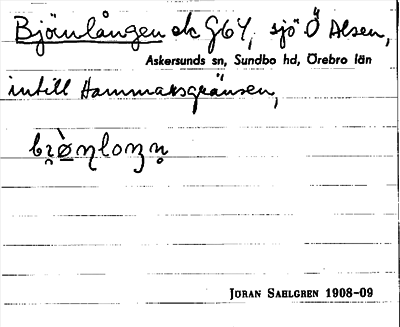 Björnlången ek G6Y, sjö Ö Alsen,
Askersunds sn, Sundbo hd, Örebro län
intill Hammarsgränsen,
JÖRAN SAHLGREN 1908-09